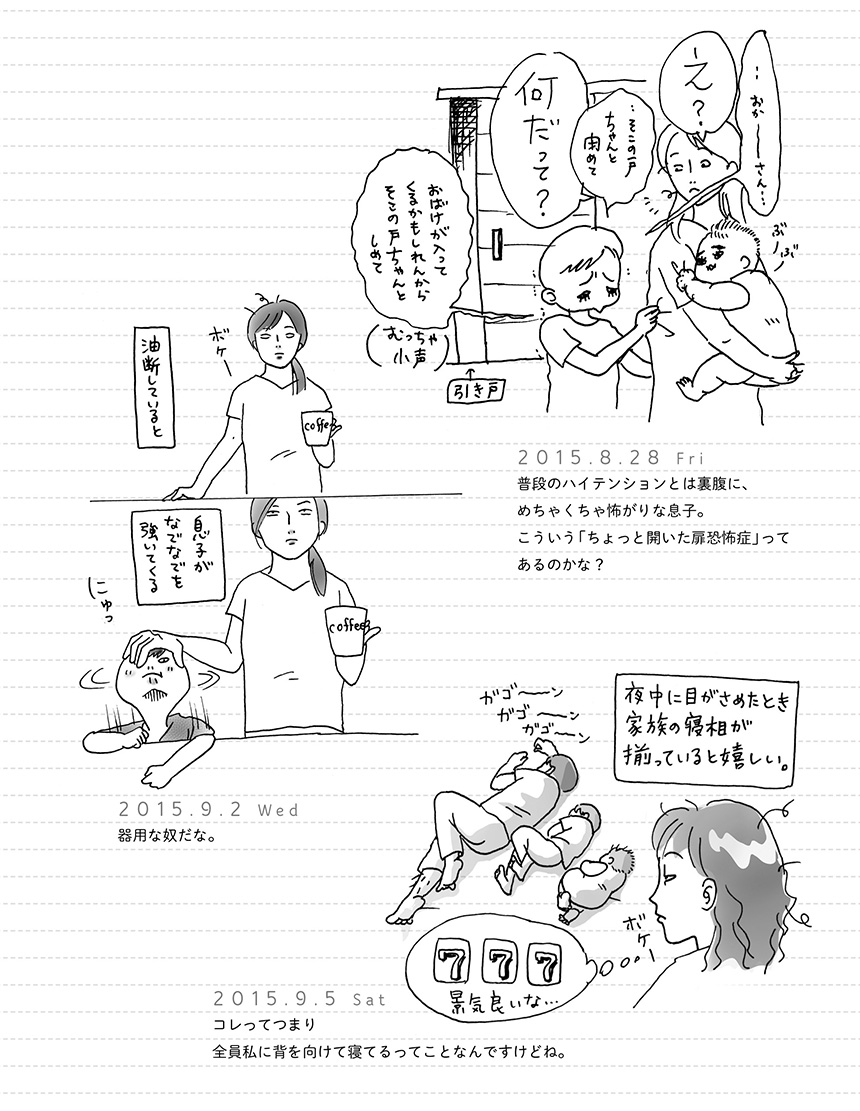 …おかーーさん…
え？
…そこの戸
ちゃんと
閉めて
何だって？
おばけが入って
くるかもしれんから
そこの戸ちゃんと
しめて
(むっちゃ
小声)
引き戸
ぶー
ぶー
2015.8.28 Fri
普段のハイテンションとは裏腹に、
めちゃくちゃ怖がりな息子。
こういう「ちょっと開いた扉恐怖症」って
あるのかな？
油断していると
ボケー
coffee
息子が
なでなでを
強いてくる
にゅっ
coffee
2015.9.2 Wed
器用な奴だな。
夜中に目がさめたとき
家族の寝相が
揃っていると嬉しい。
ガゴーーン
ガゴーーン
ガゴーーン
ボケー
7 7 7
景気良いな…
2015.9.5 Sat
コレってつまり
全員私に背を向けて寝てるってことなんですけどね。